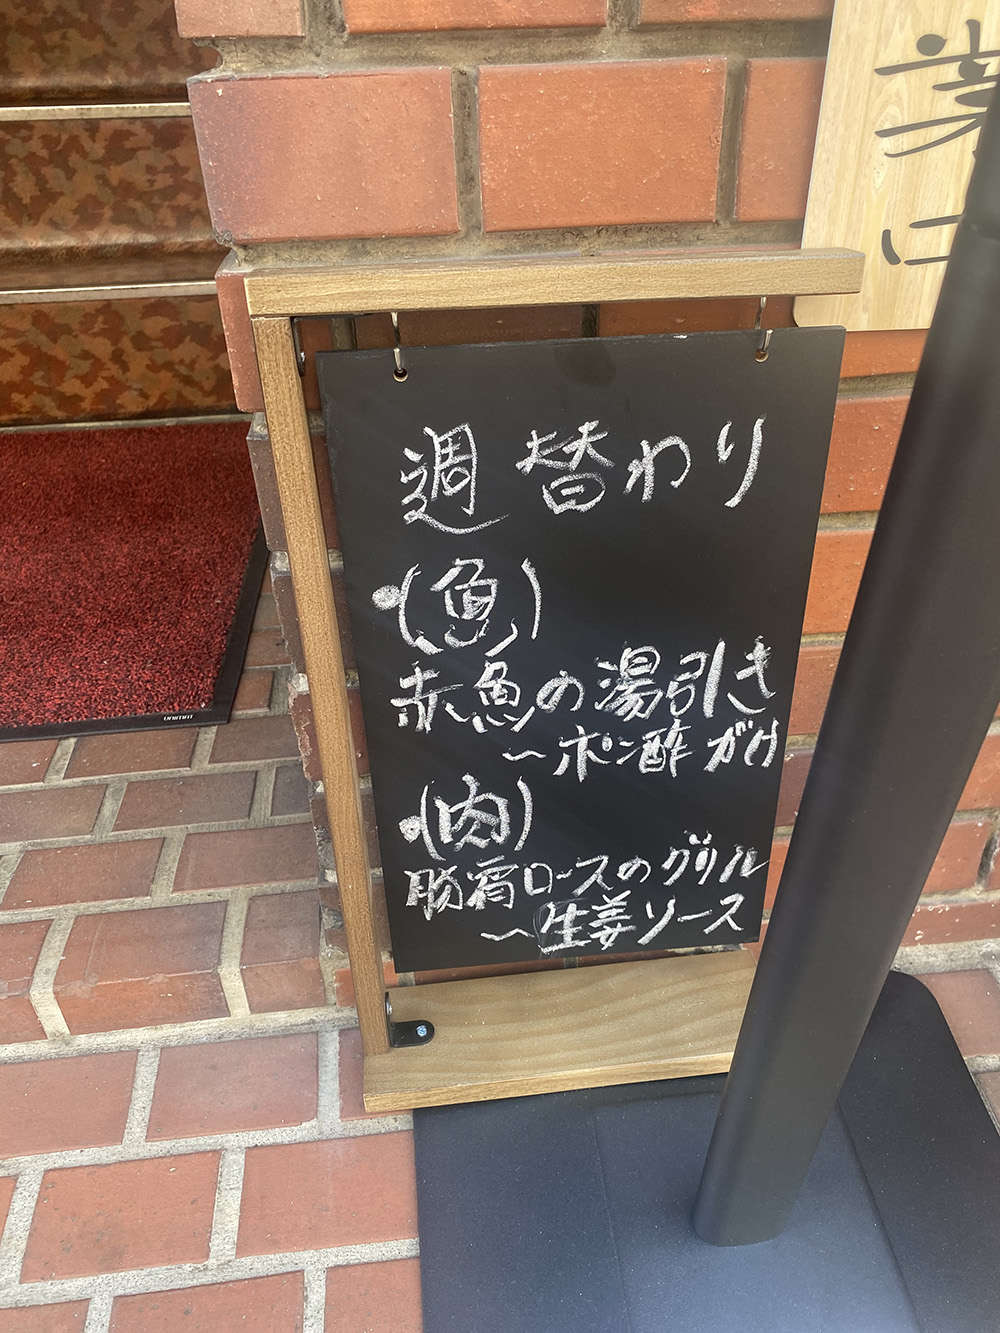 週替わり
・(魚)
赤魚の湯引き
～ポン酢がけ
・(肉)
豚肩ロースのグリル
～生姜ソース
UNIMAT